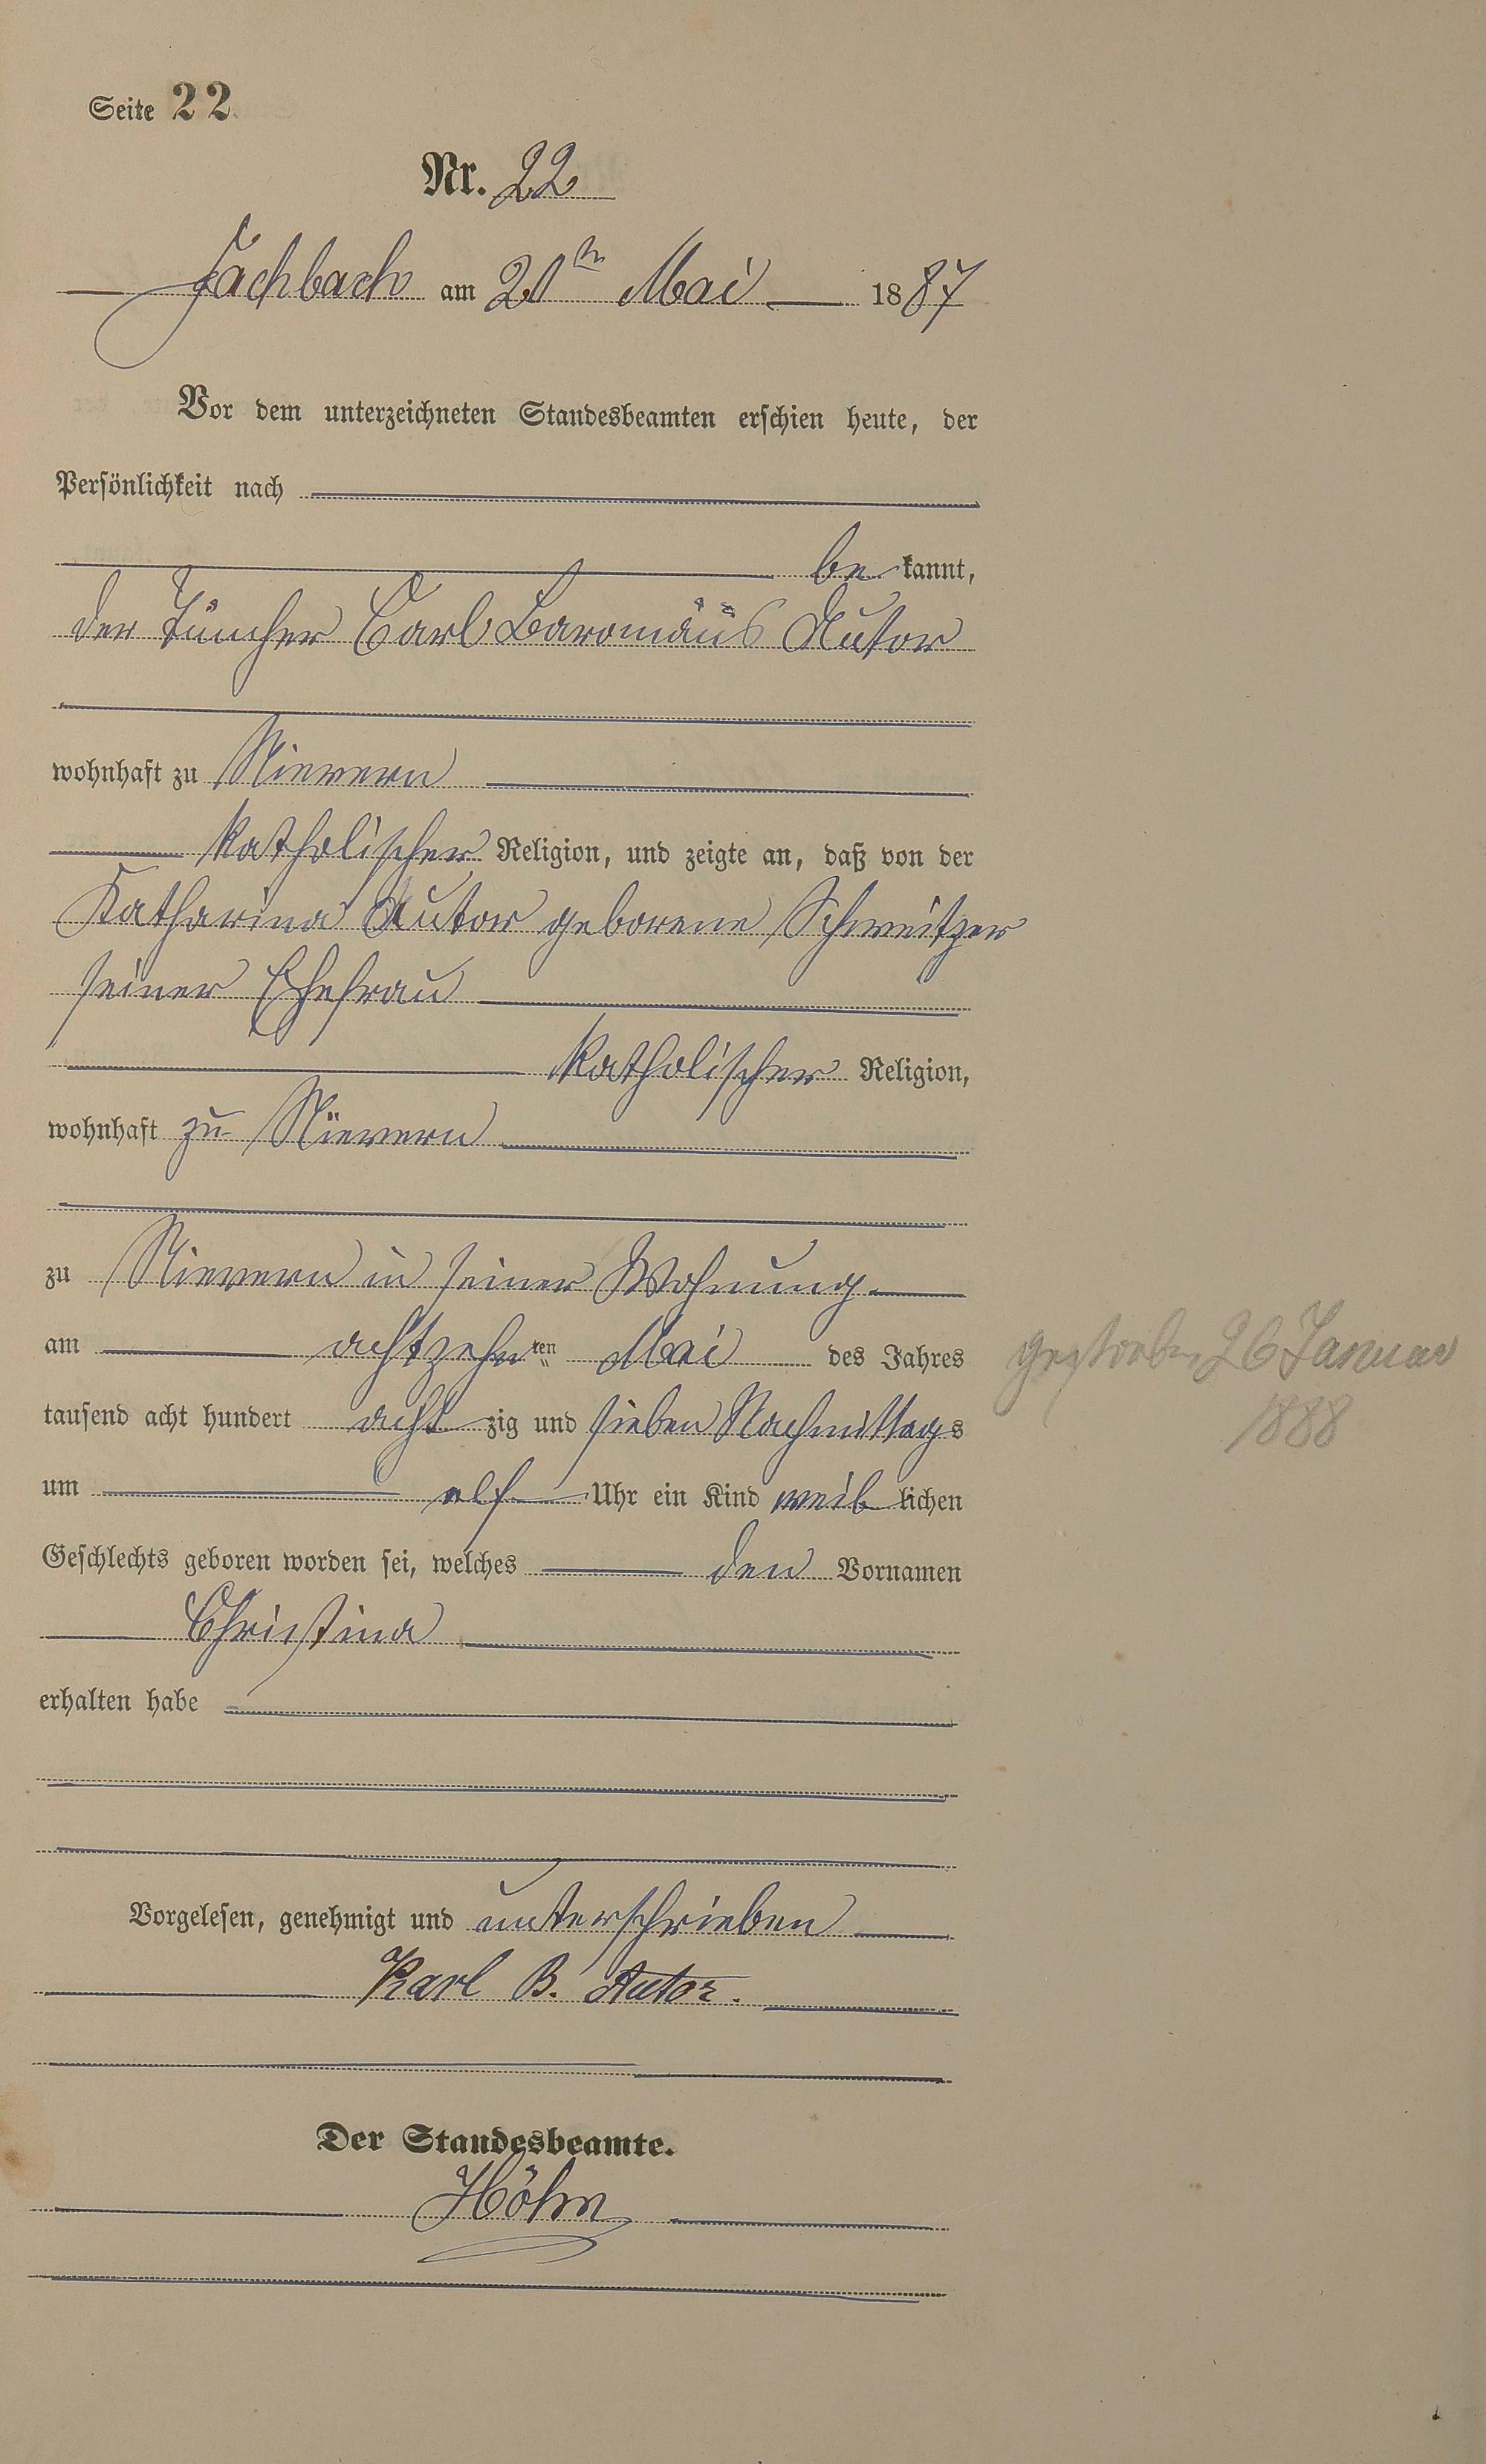 Seite 22
Nr. 22
Fachbach am 21ten Mai 1887
Vor dem unterzeichneten Standesbeamten erschien heute, der
Persönlichkeit nach
be kannt,
der Tüncher Carl Baromäus Autor
wohnhaft zu Nievern
katholischer Religion, und zeigte an, daß von der
Katharina Autor geborene Schweitzer
seiner Ehefrau
katholischer Religion,
wohnhaft zu Nievern
zu Nievern in seiner Wohnung
am achtzehnten Mai des Jahres
tausend acht hundert acht zig und sieben Nachmittags
um elf Uhr ein Kind weib lichen
Geschlechts geboren worden sei, welches den Vornamen
Christina
erhalten habe
Vorgelesen, genehmigt und unterschrieben
Karl B. Autor.
Der Standesbeamte.
Höhn
gestorben 26 Januar
1888